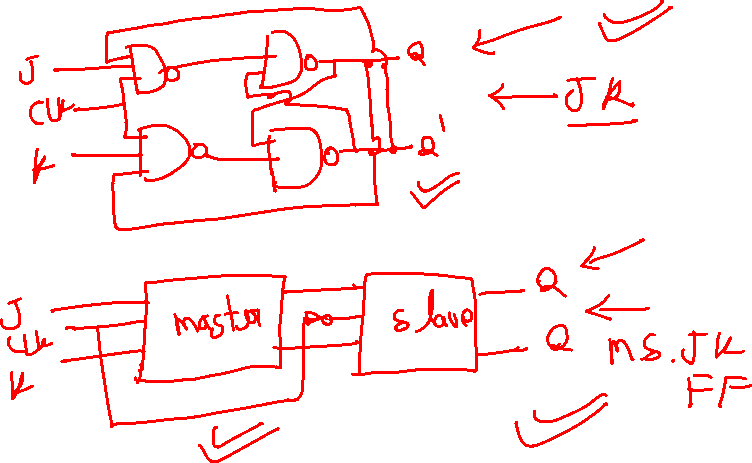 J
CLK
K
Q
Q'
JK
J
CLK
K
master
slave
Q
Q
MS. JK
FF